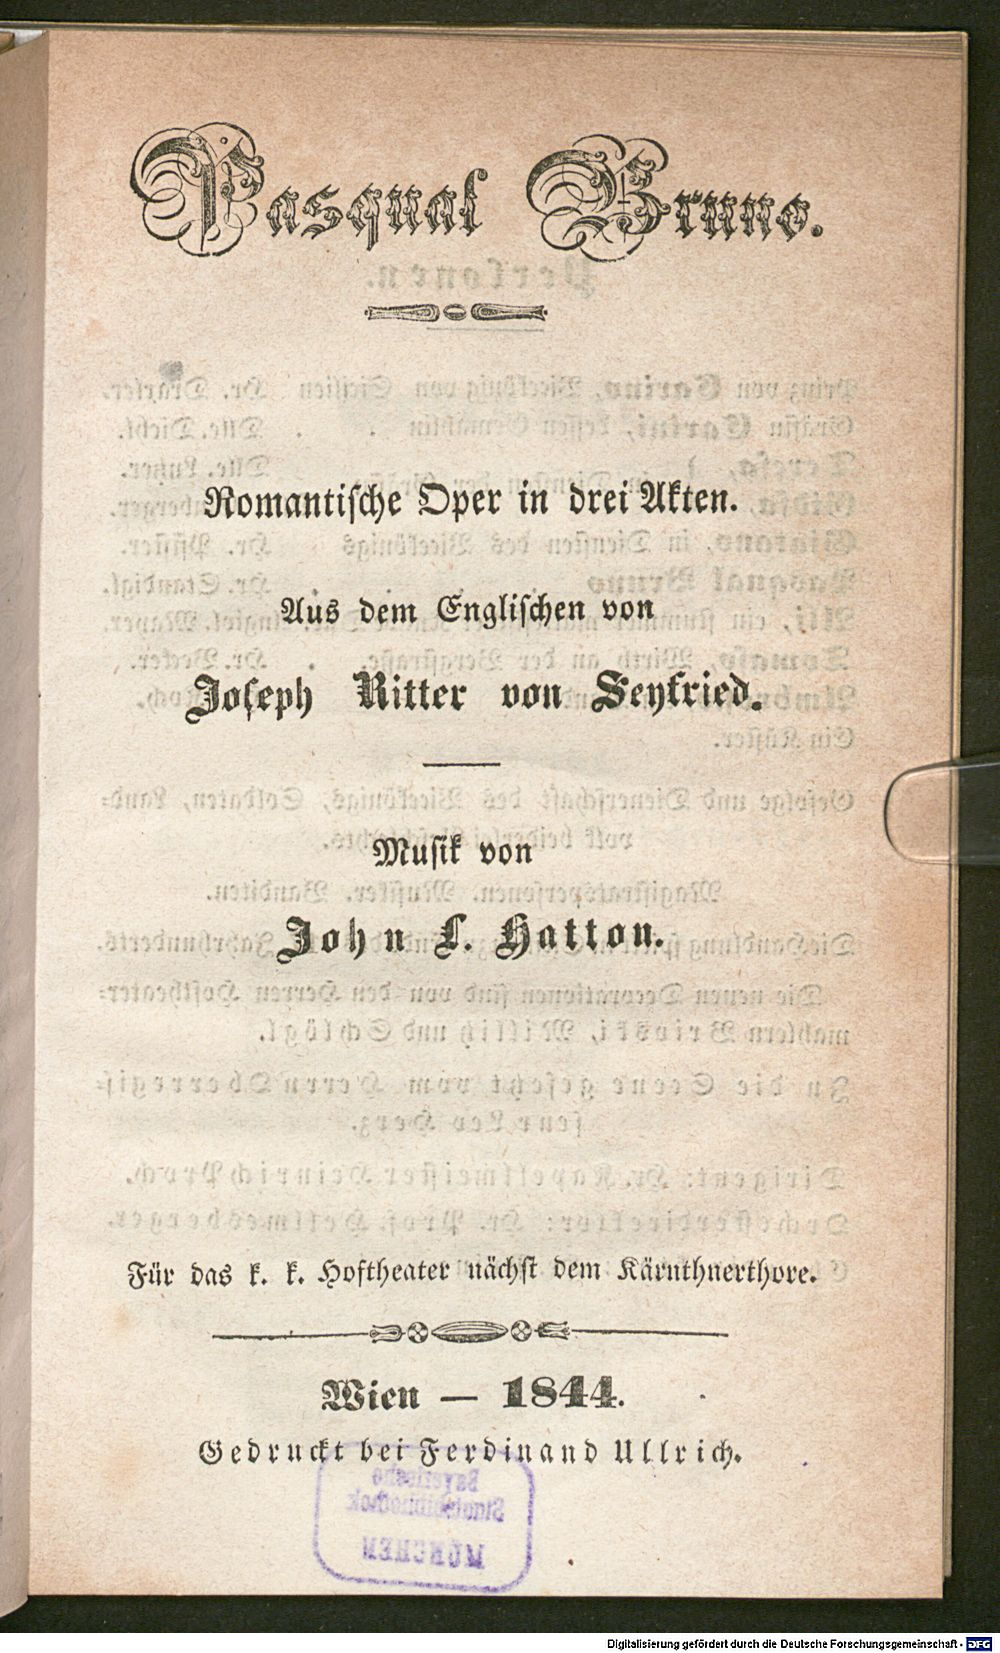 Pasqual Bruno.
Romantische Oper in drei Akten.
Aus dem Englischen von
Joseph Ritter von Seyfried.
Musik von
John L. Hatton.
Für das k. k. Hoftheater nächst dem Kärnthnerthore.
Wien — 1844.
Gedruckt bei Ferdinand Ullrich.
Bayerische
Staatsbibliothek
MÜNCHEN
Digitalisierung gefördert durch die Deutsche Forschungsgemeinschaft - DFG